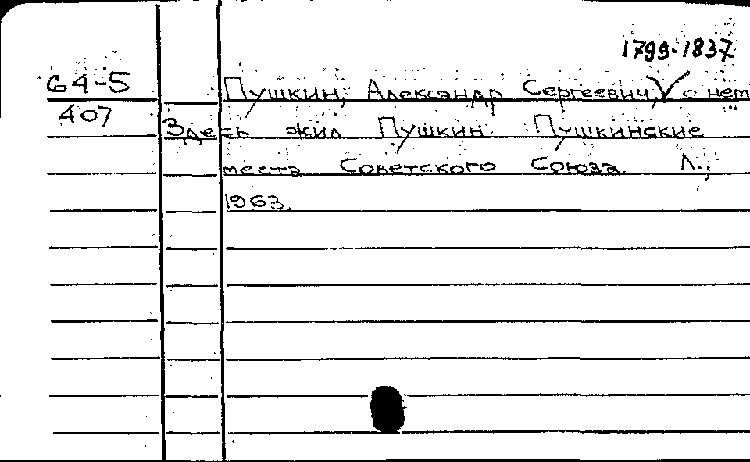 1799-1837
64-5 Пушкин, Александр Сергеевич, о нем
407 Здесь жил Пушкин. Пушкинские
места Советского Союза. Л.,
1963.